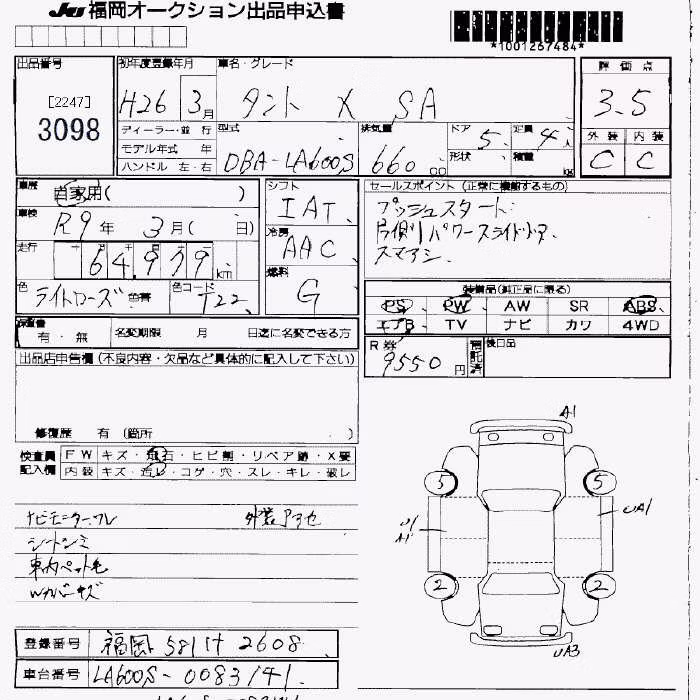 JU 福岡オークション出品申込書
*1001267484*
出品番号
[2247]
3098
初年度登録年月
H26 3月
車名・グレード
タント X SA
評価点
3.5
外装 内装
C C
ディーラー・並行
モデル年式 年
ハンドル 左・右
型式
DBA-LA600S
排気量
660 cc
ドア 5
定員 4人
形状
積量 kg
車歴
自家用( )
車検
R9年 3月( 日)
走行
64,979 km
色
ライトローズ 色替
色コード
T22
シフト
IAT
冷房
AAC
燃料
G
セールスポイント (正常に機能するもの)
プッシュスタート
片側パワースライドドア
スマアシ
装備品(純正品に限る)
PS PW AW SR ABS
エアB TV ナビ カワ 4WD
保証書
有・無
名変期限 月 日迄に名変できる方
R券
9550円
預託済
後日品
出品店申告欄 (不良内容・欠品など具体的に記入して下さい)
修復歴 有 (箇所 )
検査員記入欄
FW キズ・飛石・ヒビ割・リペア跡・X要
内装 キズ・汚レ・コゲ・穴・スレ・キレ・破レ
ナビモニターワレ
シートシミ
車内ペット毛
Wカバーキズ
A1
5 5
U1
A1
UA1
2 2
UA3
登録番号 福岡 581 け 2608
車台番号 LA600S-0083141